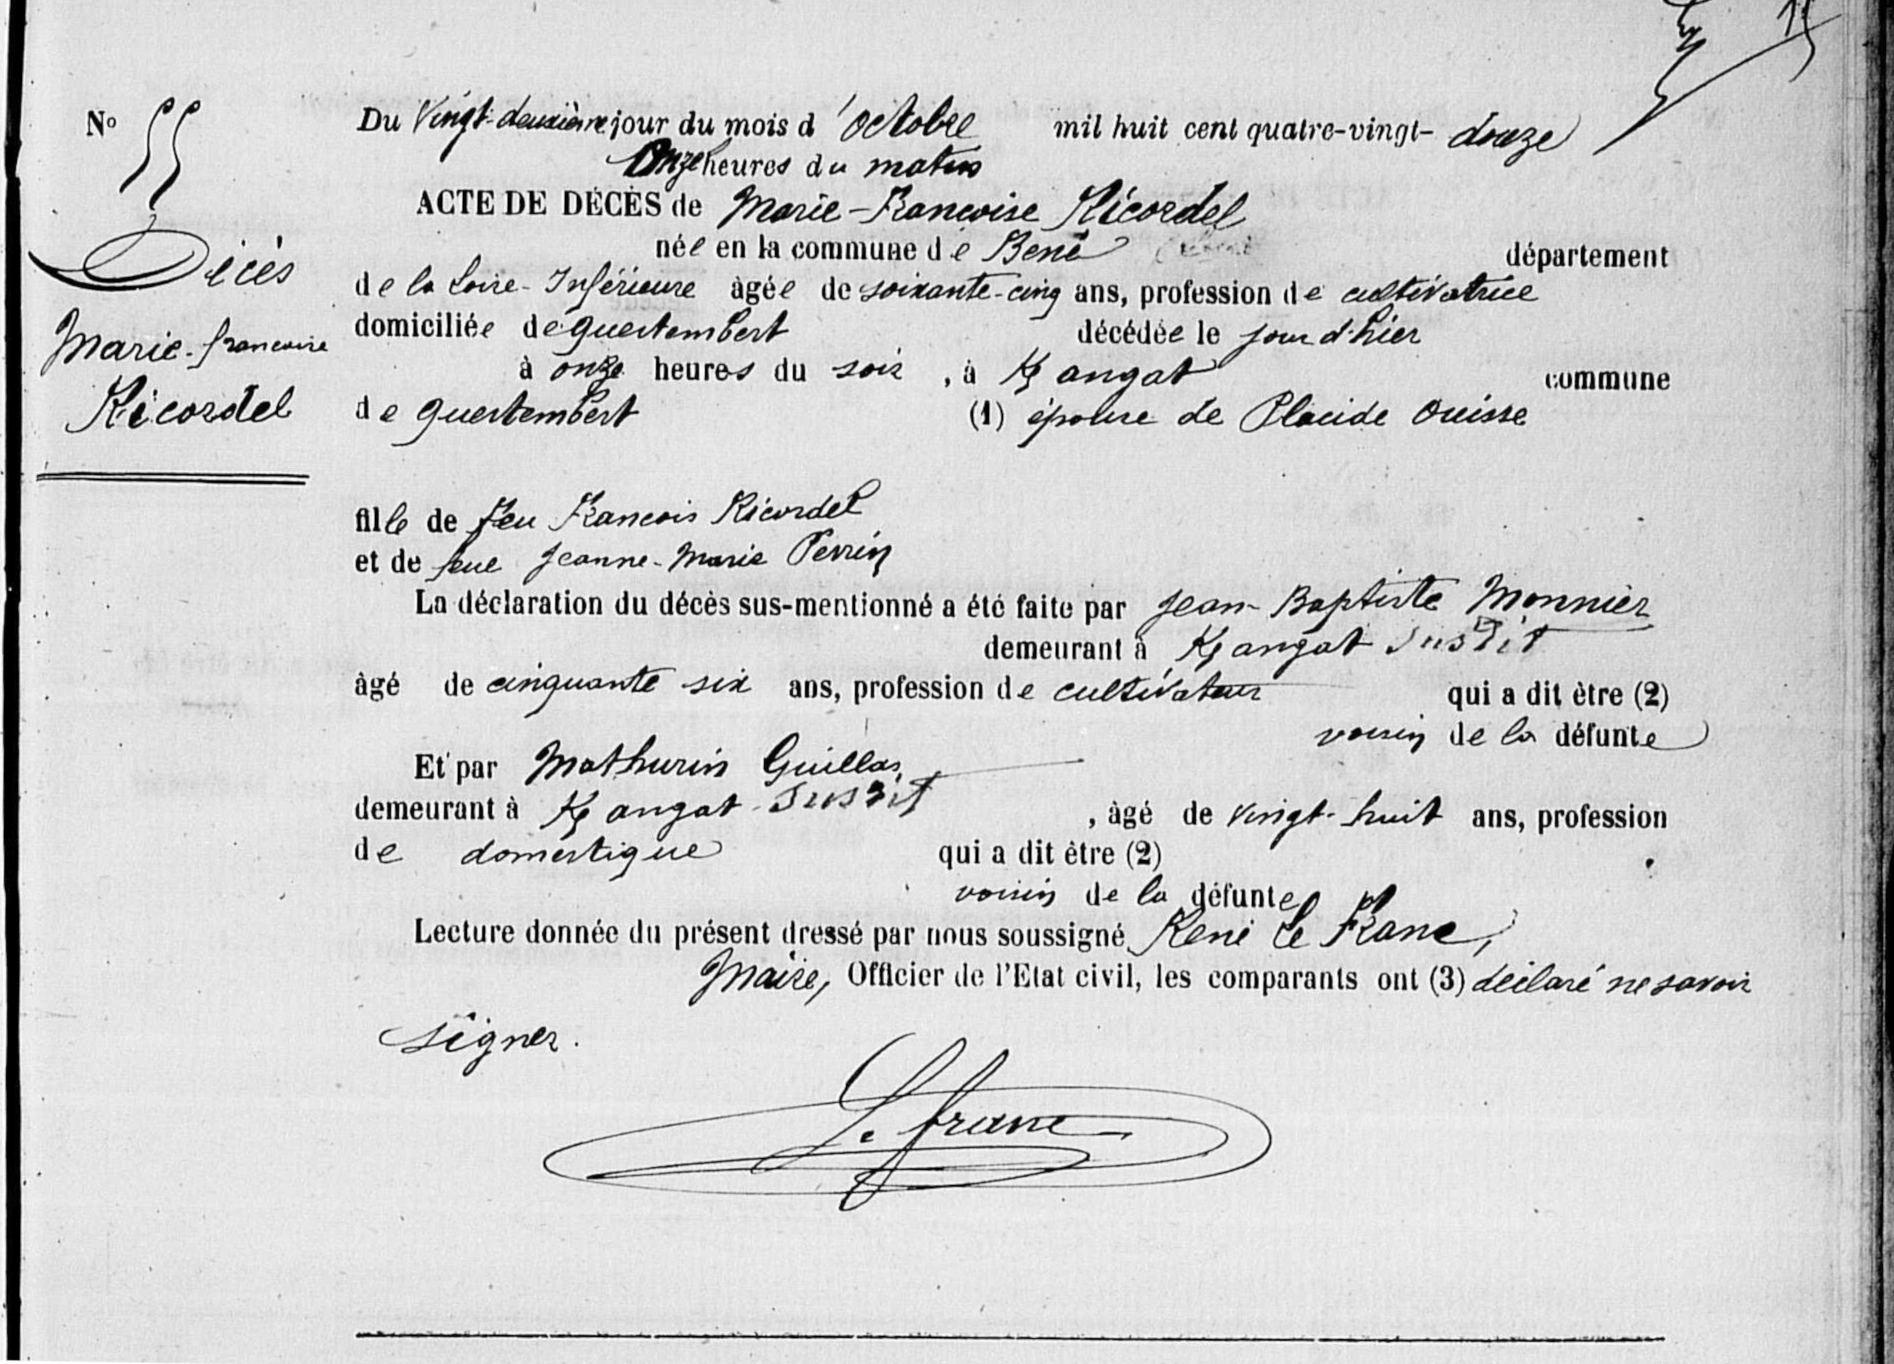 N° 55
Décès
Marie-françoise
Ricordel
Du Vingt-deuxième jour du mois d'octobre mil huit cent quatre-vingt-douze
Onze heures du matin
ACTE DE DÉCÈS de Marie-Francoise Ricordel
née en la commune de Bené département
de la Loire-Inférieure âgée de soixante-cinq ans, profession de cultivatrice
domiciliée de questembert décédée le jour d'hier
à onze heures du soir, à K/angat commune
de questembert (1) épouse de Placide Ouisse
fille de feu Francois Ricordel
et de feue Jeanne-Marie Perrin
La déclaration du décès sus-mentionné a été faite par Jean-Baptiste Monnier
demeurant à K/angat susdit
âgé de cinquante six ans, profession de cultivateur qui a dit être (2)
voisin de la défunte
Et par Mathurin Guillas
demeurant à K/angat susdit, âgé de vingt-huit ans, profession
de domestique qui a dit être (2)
voisin de la défunte
Lecture donnée du présent dressé par nous soussigné René Le Franc,
Maire, Officier de l'Etat civil, les comparants ont (3) déclaré ne savoir
signer.
Le franc